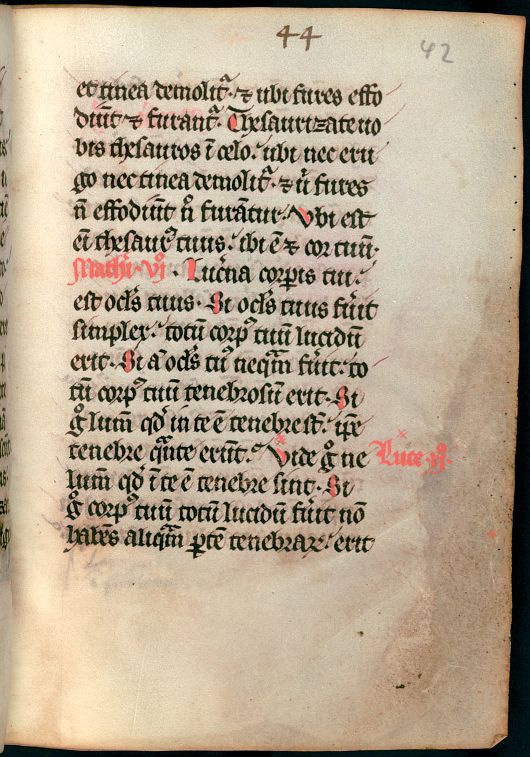 44
42
et tinea demolit᷑. ⁊ ubi fures effo
diūt ⁊ furant᷑. Thesaurizate uo
bis thesauros ī celo. ubi nec eru
go nec tinea demolit᷑. ⁊ u͛ fures
n̄ effodiūt n͛ furātur. Vbi est
eī thesaur᷒ tuus. ibi ē ⁊ cor tuū.
Mathi. vj. Luc͛na corp̄is tui.
est ocl̄s tuus. Si ocl̄s tuus fu͛it
simplex. totū corp᷒ tuū lucidū
erit. Si aͧ ocl̄s tu᷒ neqͣm fu͛it. to
tū corp᷒ tuū tenebrosū erit. Si
gͦ lum̄ qd̄ in te ē tenebre st̄. ip̄e
tenebre qͣnte erūt. Vide gͦ ne
Luce xj.
lum̄ qd̄ ī te ē tenebre sint. Si
gͦ corp᷒ tuū totū lucidū fu͛it nō
habēs aliqͣm ꝑtē tenebraꝝ. erit